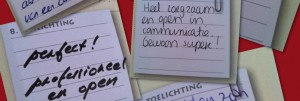 8.
LICHTING
perfect!
professioneel
en open
Heel zorgzaam
en open in
communicatie.
Gewoon super!
OELICHTING